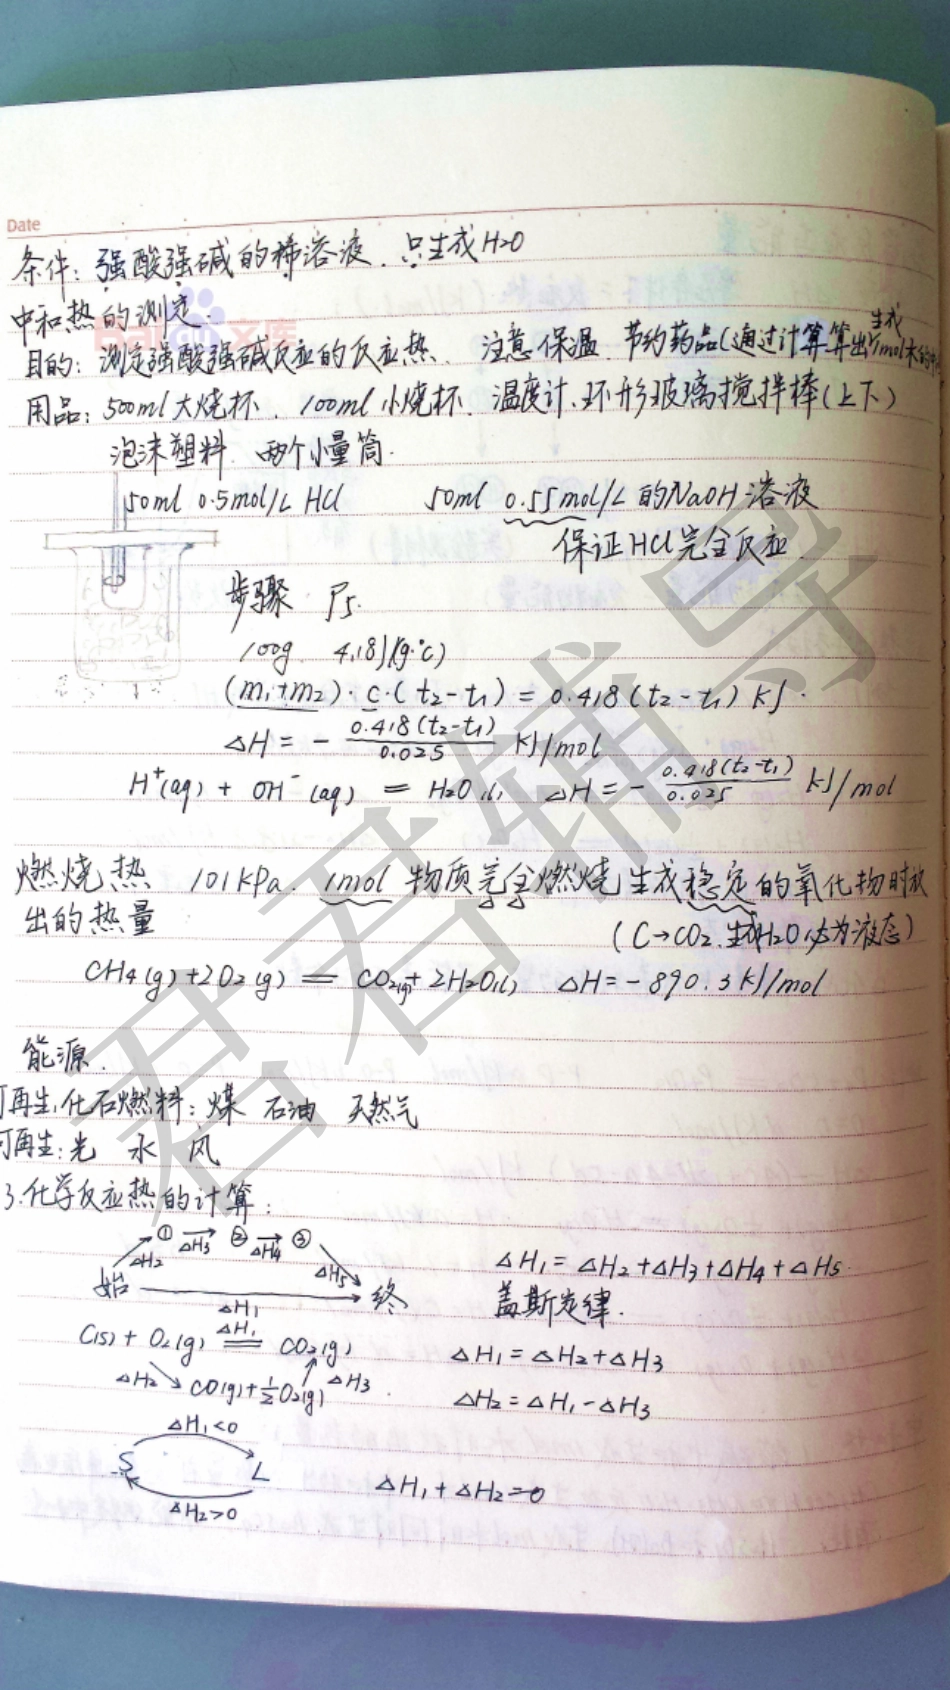 Date
条件: 强酸强碱的稀溶液. 只生成H2O
中和热的测定.
目的: 测定强酸强碱反应的反应热. 注意保温. 节约药品(通过计算算出生成1mol水的
用品: 500ml大烧杯. 100ml小烧杯. 温度计、环形玻璃搅拌棒(上下)
泡沫塑料. 两个小量筒.
50ml 0.5mol/L HCl 50ml 0.55mol/L的NaOH溶液
保证HCl完全反应.
步骤 P5.
100g 4.18J/(g·℃)
(m₁+m₂)·c·(t₂-t₁) = 0.418(t₂-t₁) kJ.
△H = - 0.418(t₂-t₁)/0.025 kJ/mol
H⁺(aq) + OH⁻(aq) = H₂O(l) △H = - 0.418(t₂-t₁)/0.025 kJ/mol
燃烧热 101kPa. 1mol物质完全燃烧生成稳定的氧化物时放
出的热量 (C→CO₂. 生成H₂O必为液态)
CH4(g)+2O2(g) = CO2(g)+2H2O(l) △H=-890.3kJ/mol
能源.
可再生: 化石燃料: 煤 石油 天然气
可再生: 光 水 风
3.化学反应热的计算:
① △H₃ ② △H4 ③
△H₂ △H5
始 △H₁ 终
△H₁ = △H₂+△H₃+△H4+△H5.
盖斯定律.
C(s)+O₂(g) △H₁ = CO₂(g)
△H₂ CO(g)+½O₂(g) △H₃.
△H₁=△H₂+△H₃
△H₂=△H₁-△H₃
△H₁<0
S L
△H₂>0
△H₁+△H₂=0
君君辅导